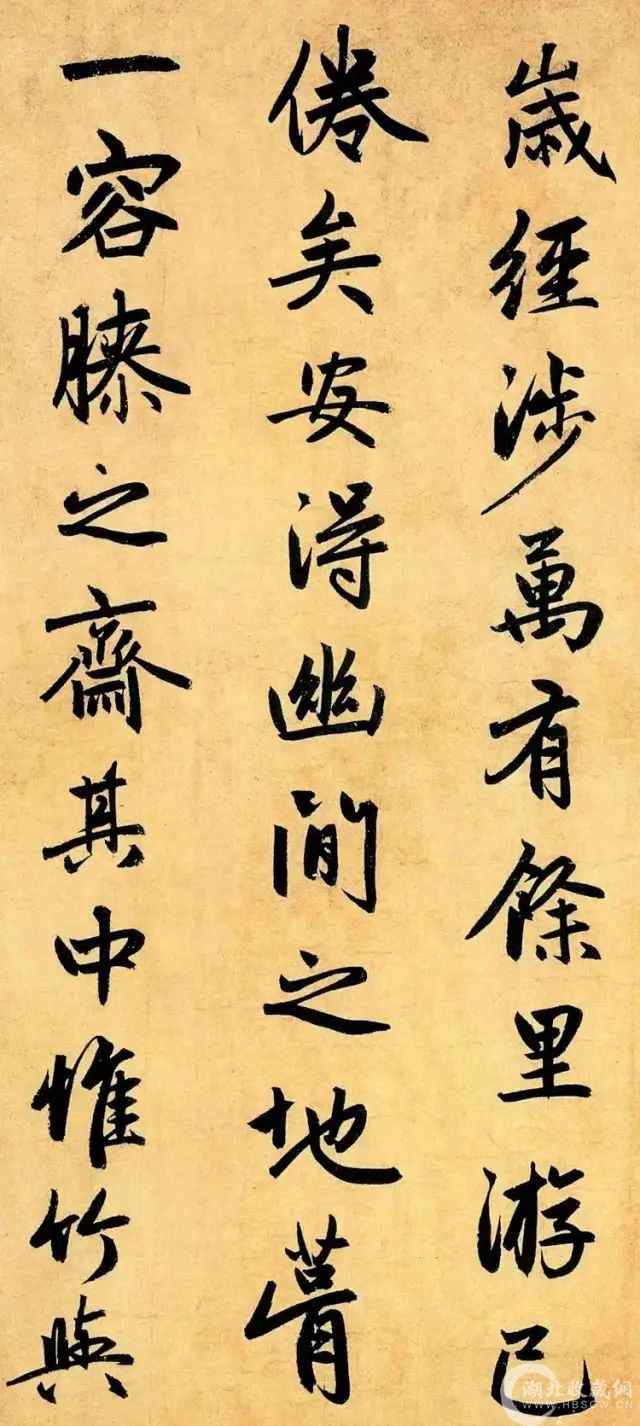 歲經涉萬有餘里游已
倦矣安得幽閒之地葺
一容膝之齋其中惟竹與
湖北收藏網
WWW.HBSCW.CN